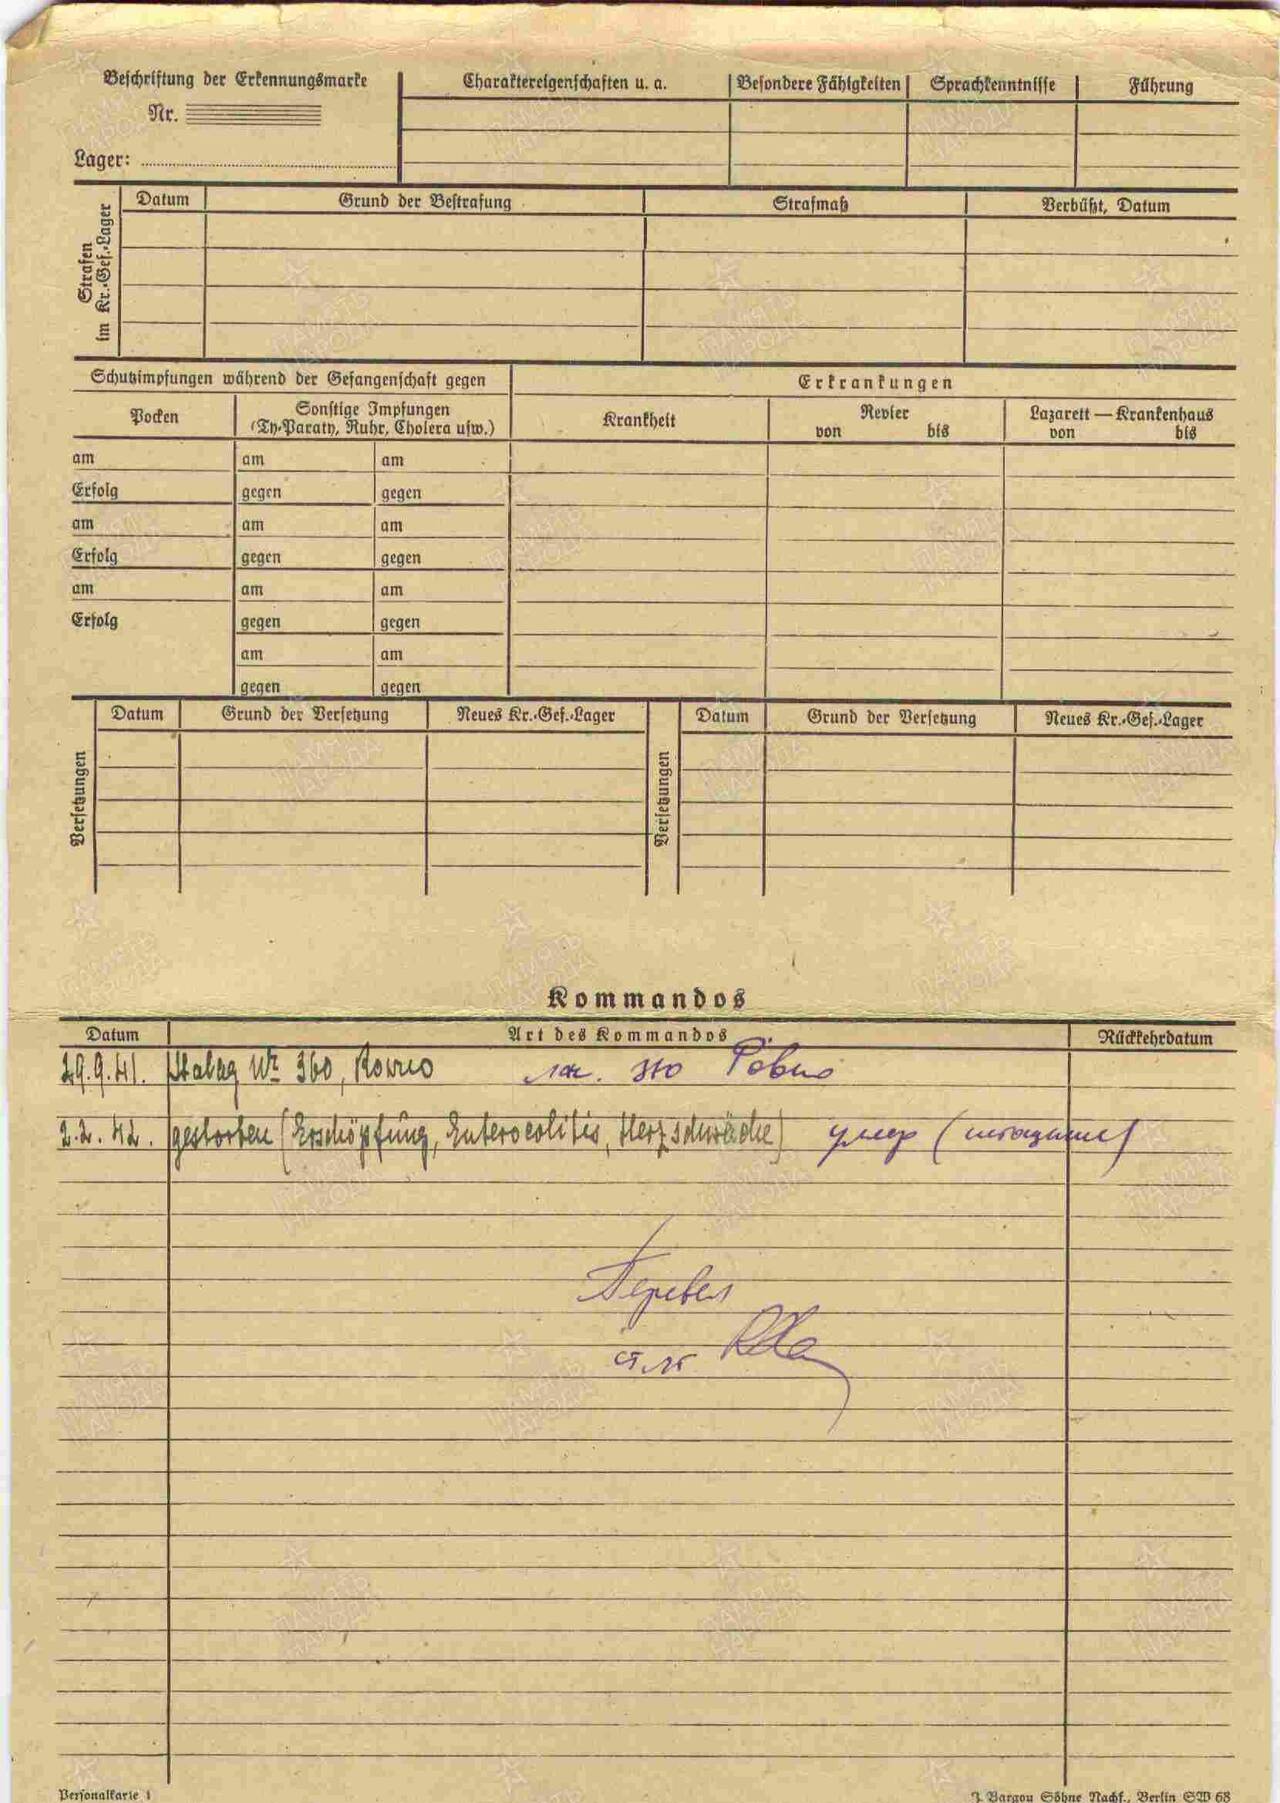 Beschriftung der Erkennungsmarke
Nr.
Lager:
Charaktereigenschaften u. a. Besondere Fähigkeiten Sprachkenntnisse Führung
Strafen im Kr.-Gef.-Lager
Datum Grund der Bestrafung Strafmaß Verbüßt, Datum
Schutzimpfungen während der Gefangenschaft gegen Erkrankungen
Pocken Sonstige Impfungen (Ty.-Paraty, Ruhr, Cholera usw.) Krankheit Revier von bis Lazarett — Krankenhaus von bis
am am am
Erfolg gegen gegen
am am am
Erfolg gegen gegen
am am am
Erfolg gegen gegen
am am
gegen gegen
Versetzungen Datum Grund der Versetzung Neues Kr.-Gef.-Lager Versetzungen Datum Grund der Versetzung Neues Kr.-Gef.-Lager
Kommandos
Datum Art des Kommandos Rückkehrdatum
29.9.41. Stalag Nr 360, Rowno Ровно
2.2.42. gestorben (Erschöpfung, Enterocolitis, Herzschwäche) умер (истощение)
Перевел
ст. лт
Personalkarte I
J. Bargou Söhne Nachf., Berlin SW 68
ПАМЯТЬ НАРОДА